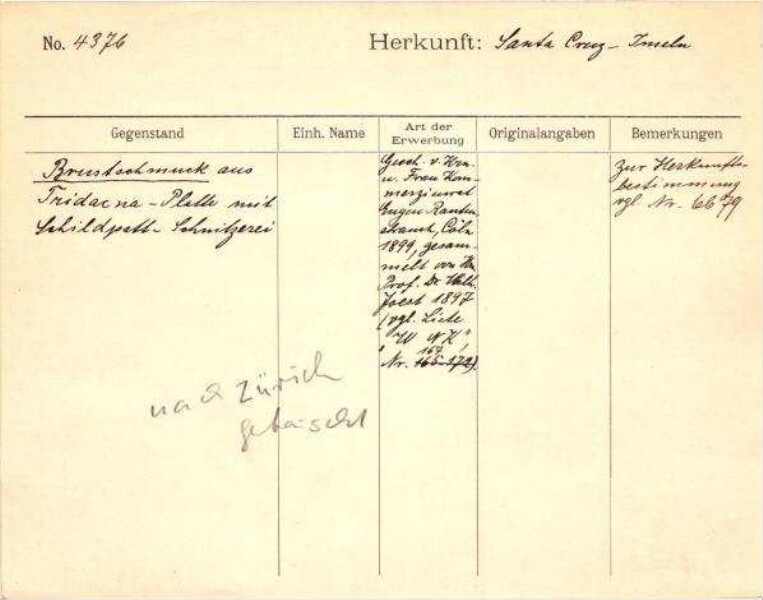 No. 4376 Herkunft: Santa Cruz - Inseln
Gegenstand Einh. Name Art der Erwerbung Originalangaben Bemerkungen
Brustschmuck aus
Tridacna - Platte mit
Schildpatt - Schnitzerei
Gesch. v. Hrn.
u. Frau Kom-
merzienrat
Eugen Rauten-
strauch, Cöln
1899, gesam-
melt von Hn.
Prof. Dr. Wilh.
Joest 1897
(vgl. Liste
"W N K"
167
Nr. 165-172)
zur Herkunfts-
bestimmung
vgl. Nr. 6679
nach Zürich
getauscht